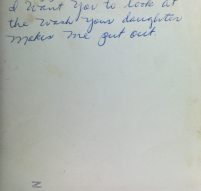 I want you to look at
the wash your daughter
makes me put out.